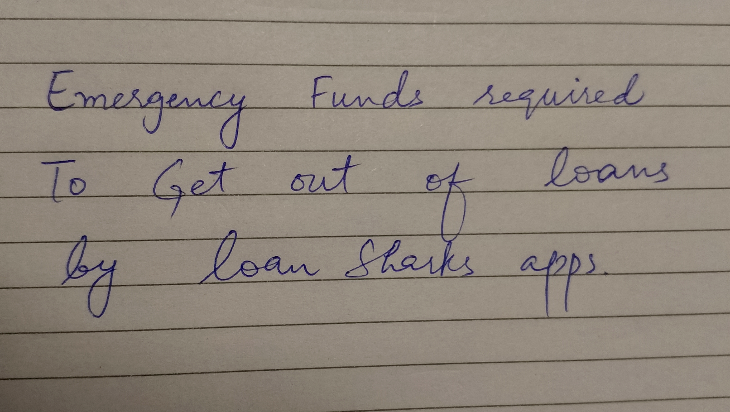 Emergency Funds required
To Get out of loans
by loan Sharks apps.